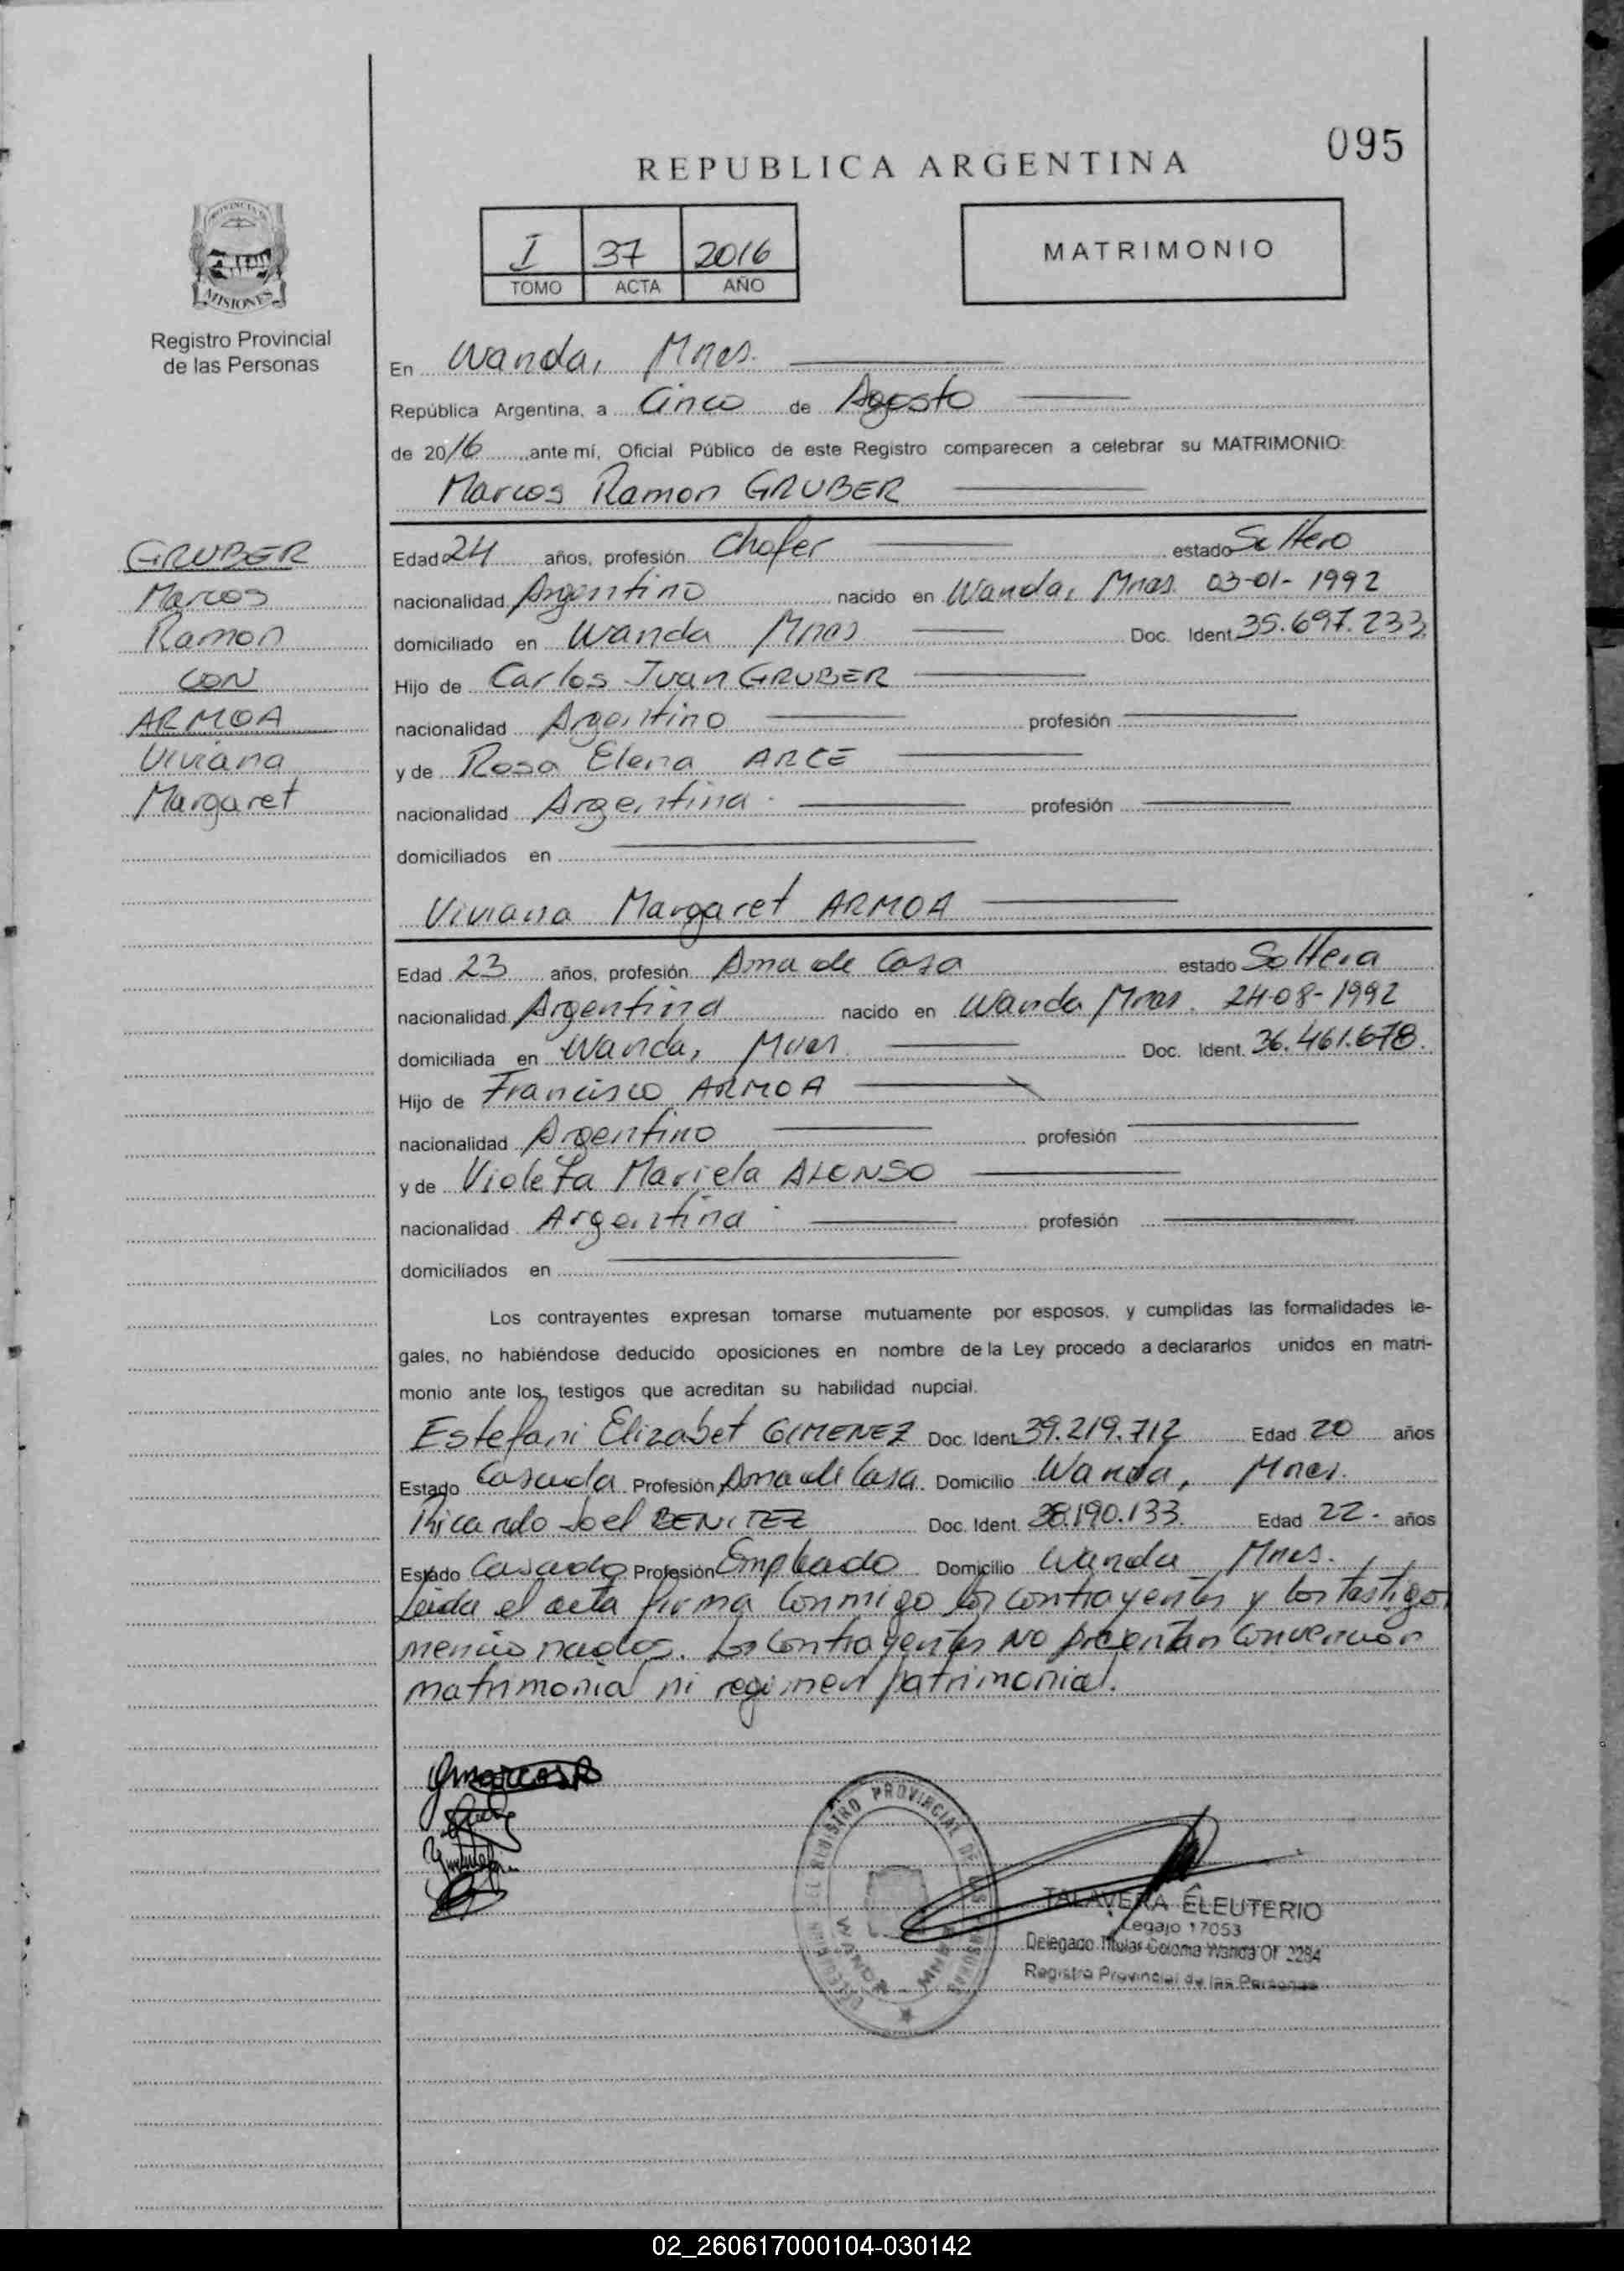 095
REPUBLICA ARGENTINA
PROVINCIA DE
MISIONES
Registro Provincial
de las Personas
I 37 2016
TOMO ACTA AÑO
MATRIMONIO
En Wanda, Mnes.
República Argentina, a Cinco de Agosto
de 2016, ante mí, Oficial Público de este Registro comparecen a celebrar su MATRIMONIO:
Marcos Ramon GRUBER
GRUBER
Marcos
Ramon
CON
ARMOA
Viviana
Margaret
Edad 24 años, profesión Chofer estado Soltero
nacionalidad Argentino nacido en Wanda, Mnes. 03-01-1992
domiciliado en Wanda Mnes Doc. Ident. 35.697.233
Hijo de Carlos Juan GRUBER
nacionalidad Argentino profesión
y de Rosa Elena ARCE
nacionalidad Argentina profesión
domiciliados en
Viviana Margaret ARMOA
Edad 23 años, profesión Ama de Casa estado Soltera
nacionalidad Argentina nacido en Wanda Mnes. 24-08-1992
domiciliada en Wanda, Mnes Doc. Ident. 36.461.678.
Hijo de Francisco ARMOA
nacionalidad Argentino profesión
y de Violeta Mariela ALONSO
nacionalidad Argentina profesión
domiciliados en
Los contrayentes expresan tomarse mutuamente por esposos, y cumplidas las formalidades le-
gales, no habiéndose deducido oposiciones en nombre de la Ley procedo a declararlos unidos en matri-
monio ante los testigos que acreditan su habilidad nupcial.
Estefani Elizabet GIMENEZ Doc. Ident. 39.219.712 Edad 20 años
Estado Casada Profesión Ama de Casa Domicilio Wanda, Mnes.
Ricardo Joel BENITEZ Doc. Ident. 38.190.133. Edad 22- años
Estado Casado Profesión Empleado Domicilio Wanda Mnes.
Leida el acta firma conmigo los contrayentes y los testigos
mencionados. Los contrayentes NO presentan Convención
matrimonial ni regimen patrimonial.
REGISTRO PROVINCIAL DE LAS PERSONAS
WANDA
TALAVERA ELEUTERIO
Legajo 17053
Delegado Titular Colonia Wanda Of 2284
Registro Provincial de las Personas
02_260617000104-030142